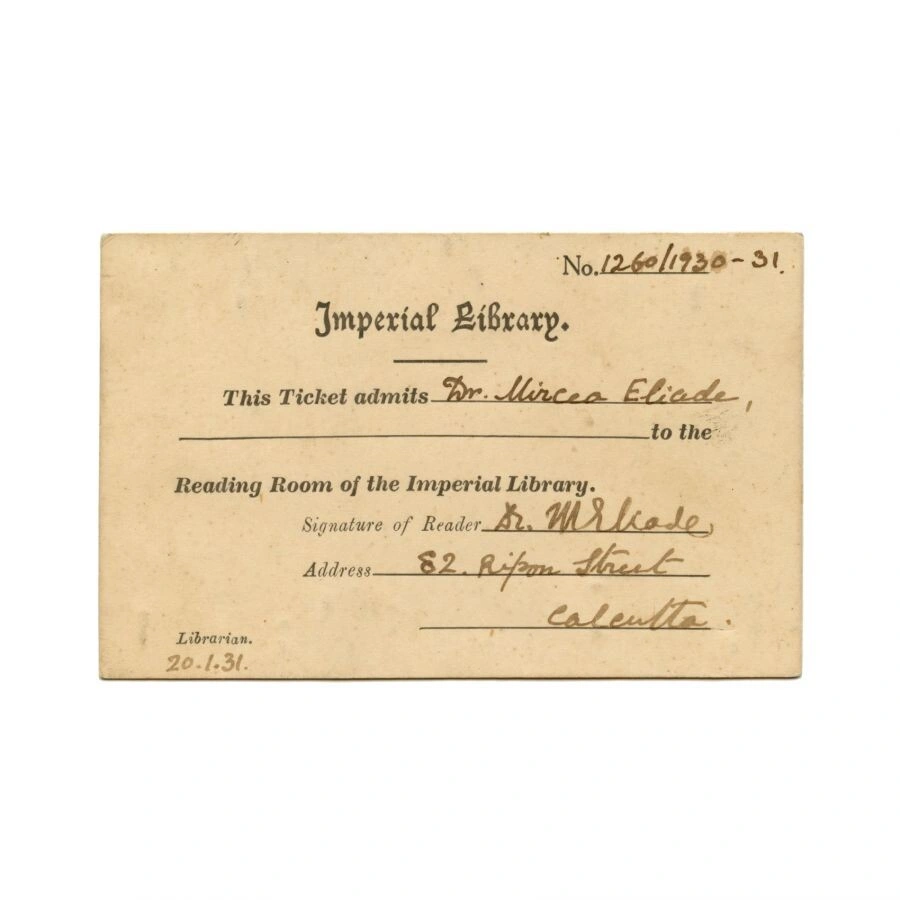 No. 1260/1930-31.
Imperial Library.
This Ticket admits Dr. Mircea Eliade,
to the
Reading Room of the Imperial Library.
Signature of Reader Dr. M Eliade,
Address 82. Ripon Street
Calcutta.
Librarian.
20.1.31.